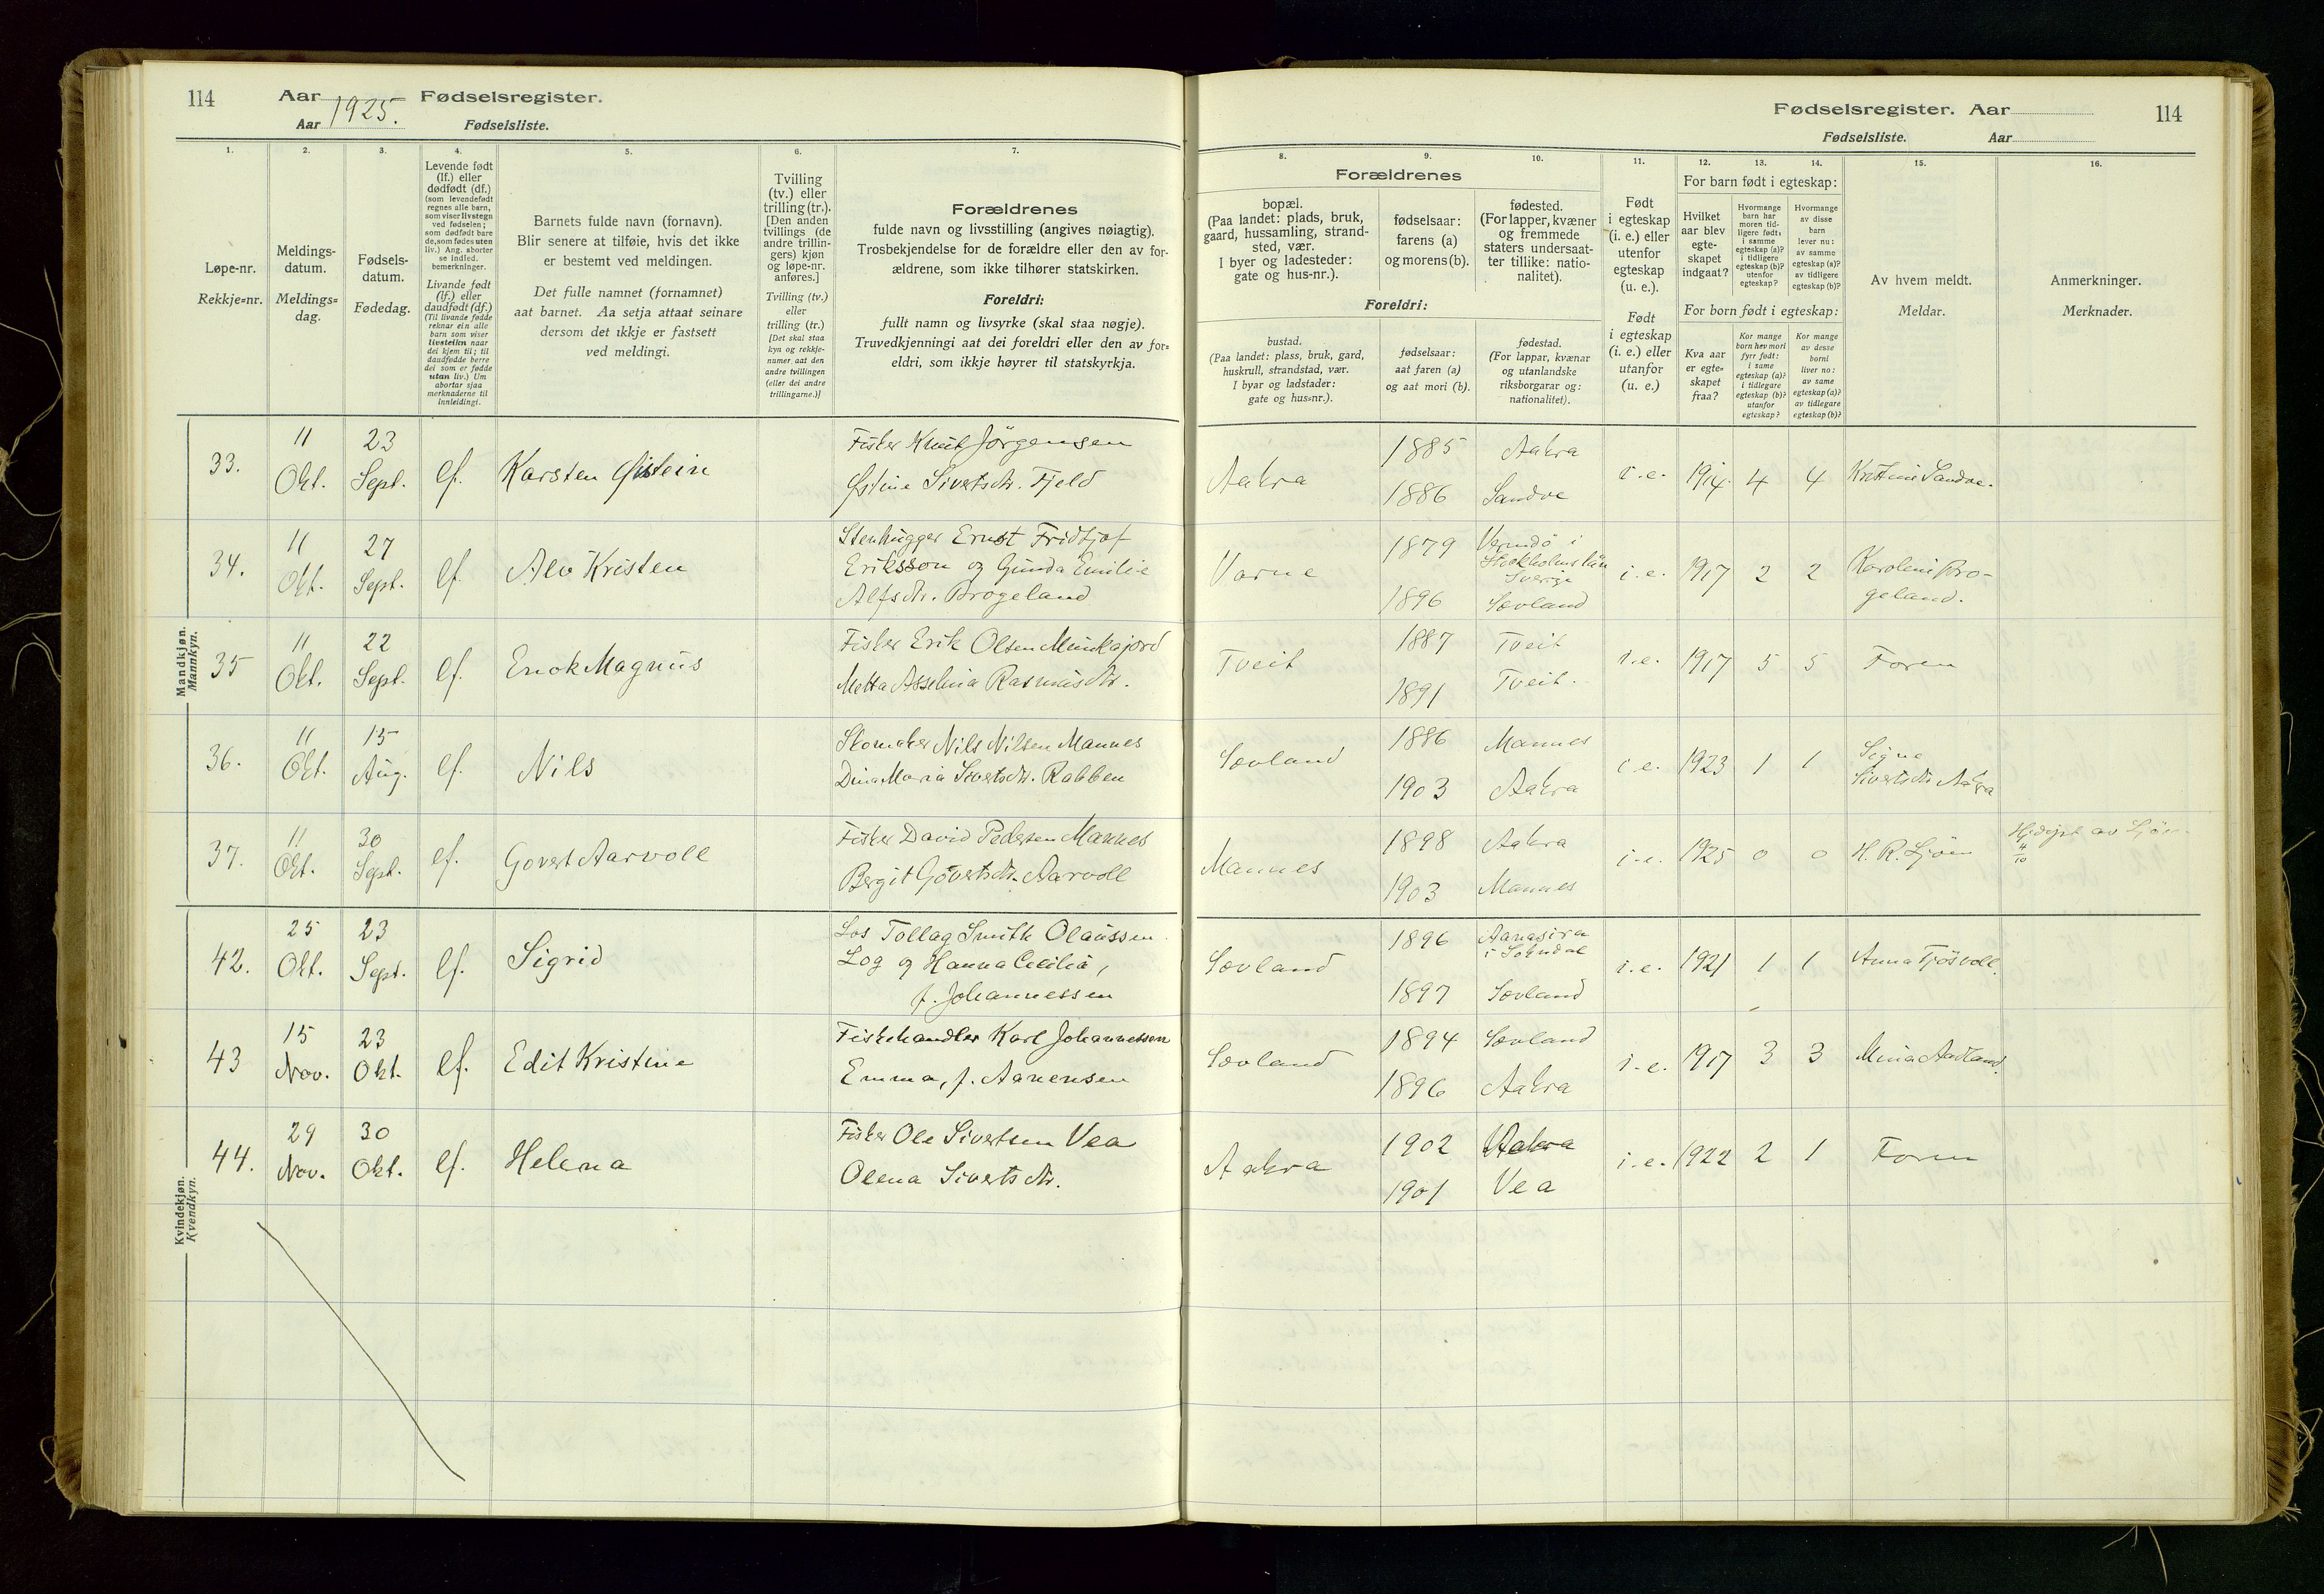 114
Aar 1925. Fødselsregister.
Aar Fødselsliste.
Fødselsregister. Aar
114
Fødselsliste. Aar
1.
Løpe-nr.
Rekkje=nr.
2.
Meldings-
datum.
Meldings=
dag.
3.
Fødsels-
datum.
Fødedag.
4.
Levende født
(lf.) eller
dødfødt (df.)
(som levendefødt
regnes alle barn,
som viser livstegn
ved fødselen;
som dødfødt bare
de, som fødes uten
liv.) Ang. aborter
se indled.
bemerkninger.
Livande født
(lf.) eller
daudfødt (df.)
(Til livande fødde
reknar ein alle
barn som viser
livsteikn naar
dei kjem til; til
daudfødde berre
dei som er fødde
utan liv.) Um
abortar sjaa
merknaderne til
innleidingi.
5.
Barnets fulde navn (fornavn).
Blir senere at tilføie, hvis det ikke
er bestemt ved meldingen.
Det fulle namnet (fornamnet)
aat barnet. Aa setja attaat seinare
dersom det ikkje er fastsett
ved meldingi.
6.
Tvilling
(tv.) eller
trilling (tr.).
[Den anden
tvillings (de
andre trillin-
gers) kjøn
og løpe-nr.
anføres.]
Tvilling (tv.)
eller
trilling (tr.)
[Det skal staa
kyn og rekkje-
numer aat den
andre tvillingen
(eller dei andre
trillingarne.)]
7.
Forældrenes
fulde navn og livsstilling (angives nøiagtig).
Trosbekjendelse for de forældre eller den av for-
ældrene, som ikke tilhører statskirken.
Foreldri:
fullt namn og livsyrke (skal staa nøgje).
Truvedkjenningi aat dei foreldri eller den av for=
eldri, som ikkje høyrer til statskyrkja.
Forældrenes
8.
bopæl.
(Paa landet: plads, bruk,
gaard, hussamling, strand-
sted, vær.
I byer og ladesteder:
gate og hus-nr.).
9.
fødselsaar:
farens (a)
og morens (b).
10.
fødested.
(For lapper, kvæner
og fremmede
staters undersaat-
ter tillike: natio-
nalitet).
Foreldri:
bustad.
(Paa landet: plass, bruk, gard,
huskrull, strandstad, vær.
I byar og ladstader:
gate og hus=nr.).
fødselsaar:
aat faren (a)
og aat mori (b).
fødestad.
(For lappar, kvænar
og utanlandske
riksborgarar og:
nationalitet).
11.
Født
i egteskap
(i. e.) eller
utenfor
egteskap
(u. e.).
Født
i egteskap
(i. e.) eller
utanfor
(u. e.)
12. 13. 14.
For barn født i egteskap:
Hvilket
aar blev
egte-
skapet
indgaat?
Hvormange
barn har
moren tid-
ligere født:
i samme
egteskap (a)?
i tidligere
egteskap (b)?
utenfor
egteskap?
Hvormange
av disse
barn
lever nu:
av samme
egteskap (a)?
av tidligere
egteskap (b)?
For born født i egteskap:
Kva aar
er egte=
skapet
fraa?
Kor mange
born hev mori
fyrr født:
i same
egteskap (a)?
i tidlegare
egteskap (b)?
utanfor
egteskap?
Kor mange
av desse
borni
liver no:
av same
egteskap (a)?
av tidlegare
egteskap (b)?
15.
Av hvem meldt.
Meldar.
16.
Anmerkninger.
Merknader.
Mandkjøn.
Mannkyn.
33. 11 Okt. 23 Sept. lf. Karsten Østein
Fisker Knut Jörgensen
Østine Sivertsdtr. Fjeld
Aakra 1885 Aakra
1886 Sandve
i.e. 1914. 4 4 Kristine Sandve.
34. 11 Okt. 27 Sept. lf. Alv Kristen
Stenhugger Ernst Fridtjof
Eriksson og Gunda Emilie
Alfsdtr. Brogeland
Varne 1879 Vermdö i
Stockholms län
Sverige
1896 Sævland
i.e. 1917 2 2 Karoline Bro-
geland.
35 11 Okt. 22 Sept. lf. Enok Magnus
Fisker Erik Olsen Munkajord
Metta Asselina Rasmusdtr.
Tveit 1887 Tveit
1891 Tveit.
i.e. 1917 5 5 Foren
36. 11 Okt. 15 Aug. lf. Nils
Skomaker Nils Nilsen Mannes
Dina Maria Sivertsdtr. Rabben
Sævland 1886 Mannes
1903 Aakra
i.e. 1923 1 1 Signe
Sivertsdtr Aakra
37. 11 Okt. 30 Sept. lf. Govert Aarvoll
Fisker David Pedersen Mannes
Bergit Govertsdtr. Aarvoll
Mannes 1898 Aakra
1903 Mannes
i.e. 1925 0 0 H. R. Sjöen
Hjdøpt av Sjöen
4/10
Kvindekjøn.
Kvendkyn.
42. 25 Okt. 23 Sept. lf. Sigrid
Los Tollag Smith Olaussen
Log og Hanna Cecilia,
f. Johannessen
Sævland 1896 Aanasira
i Sokndal
1897 Sævland
i.e. 1921 1 1 Anna Tjösvoll.
43 15 Nov. 23 Okt. lf. Edit Kristine
Fiskehandler Karl Johannessen
Emma, f. Aanensen
Sævland 1894 Sævland
1896 Aakra
i.e. 1917 3 3 Mina Aadland.
44. 29 Nov. 30 Okt. lf. Helena
Fisker Ole Sivertsen Vea
Olena Sivertsdtr.
Aakra 1902 Aakra
1901 Vea
i.e. 1922 2 1 Foren